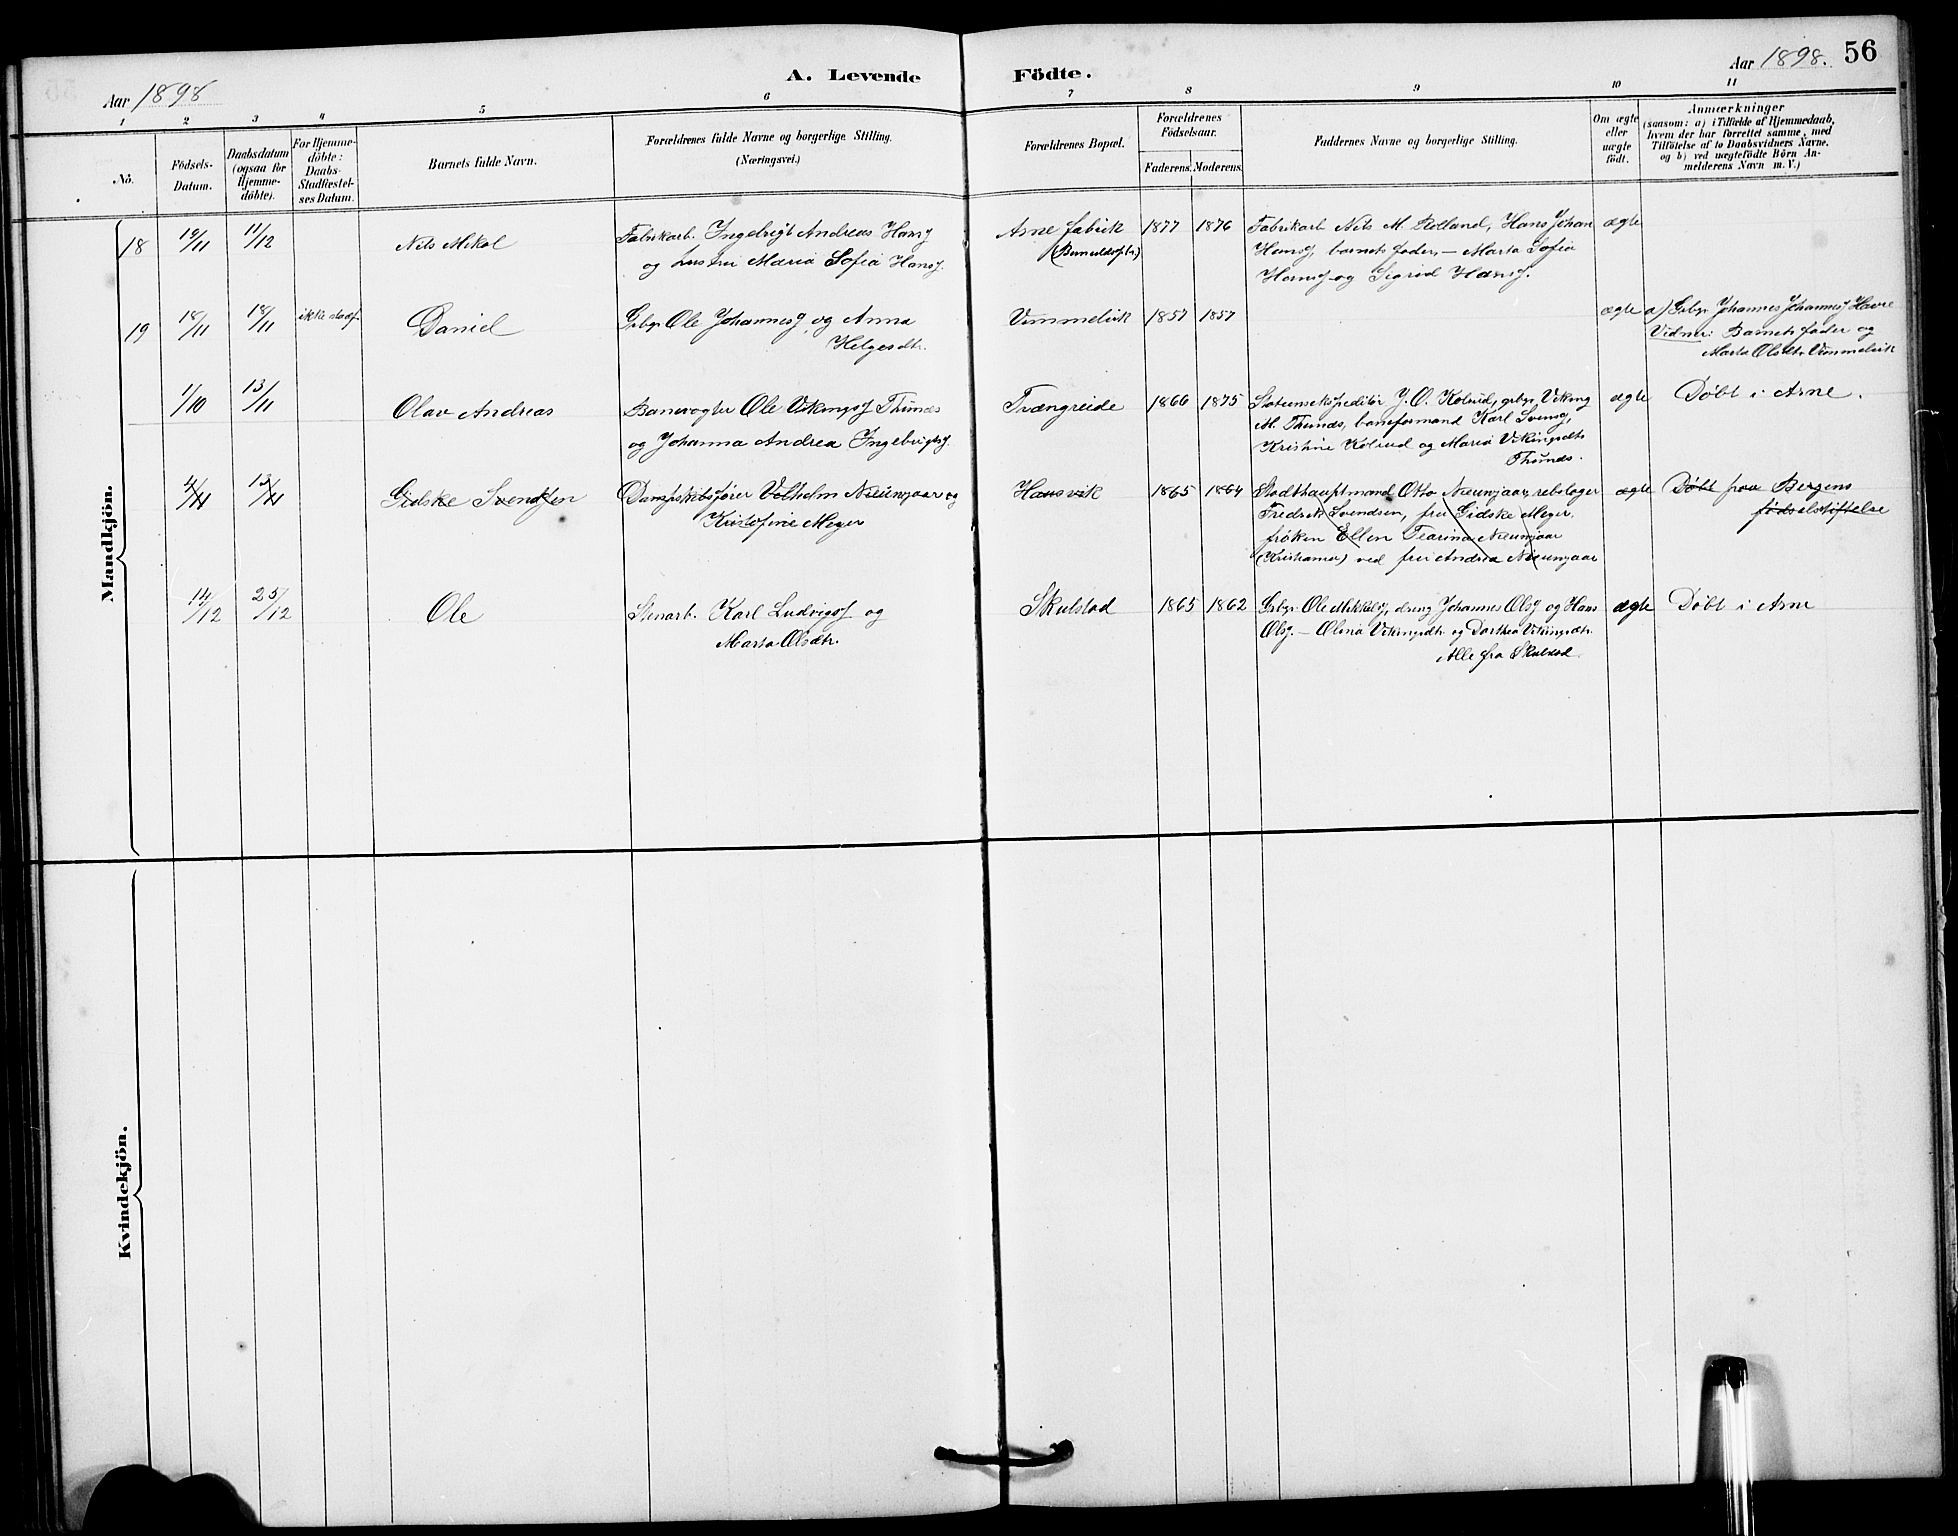 Aar 1898
A. Levende Födte.
Aar 1898. 56
1 2 3 4 5 6 7 8 9 10 11
No.
Födsels-Datum.
Daabsdatum (ogsaa for Hjemmedöbte).
For Hjemmedöbte: Daabs-Stadfæstelses Datum.
Barnets fulde Navn.
Forældrenes fulde Navne og borgerlige Stilling.
(Næringsvei.)
Forældrenes Bopæl.
Forældrenes Födselsaar.
Faderens. Moderens.
Faddernes Navne og borgerlige Stilling.
Om ægte eller uægte født.
Anmærkninger
(saasom: a) i Tilfælde af Hjemmedaab,
hvem der har forrettet samme, med
Tilföielse af to Daabsvidners Navne.
og b) ved uægtefödte Börn An-
melderens Navn m. V.)
Mandkjön.
18 19/11 11/12 Nils Mikal
Fabrikarb. Ingebrigt Andreas Hansj
og hustru Maria Sofia Hansj.
Arne fabrik 1877 1876
Fabrikarb. Nils M. Rolland, Hans Johan
Hansj, barnets fader, – Marta Sofia
Hansj og Sigrid Hansj.
ægte
19 18/11 18/11 ikke stadf. Daniel
Grbgr Ole Johannesj og Anna
Helgesdtr.
Vimmelvik 1857 1857 ægte
a) Grbgr Johannes Johannesj Havre
Vidner: Barnets fader og
Marta Olsdtr. Vimmelvik
1/10 13/11 Olav Andreas
Banevogter Ole Vikingsj Thunes
og Johanna Andrea Ingebrigtsj
Tvængreide 1866 1875
Stationsekspeditör J. O. Kolrud, grbgr. Viking
M. Thunes, baneformand Karl Svensj,
Kristine Kolrud og Maria Vikingsdtr
Thunes.
ægte Döbt i Arne.
4/11 13/11 Gidske Svendsen
Dampskibsförer Vilhelm Nieunjaar og
Kristofine Meyer
Hansvik 1865 1864
Stadthauptmand Otto Nieunjaar, rebslager
Fredrik Svendsen, fru Gidske Meyer,
fröken Ellen Nieunjaar
ved fru Andrea Nieunjaar
ægte Döbt paa Bergens
fødselsstiftelse
14/12 25/12 Ole
Stenarb. Karl Ludvigsj og
Marta Olsdtr.
Skulstad 1865 1862
Grbgr Ole Mikkelsj, dreng Johannes Olsj og Hans
Olsj. – Olina Vikingsdtr. og Dorthea Vikingsdtr.
Alle fra Skulstad.
ægte Döbt i Arne
Kvindekjön.